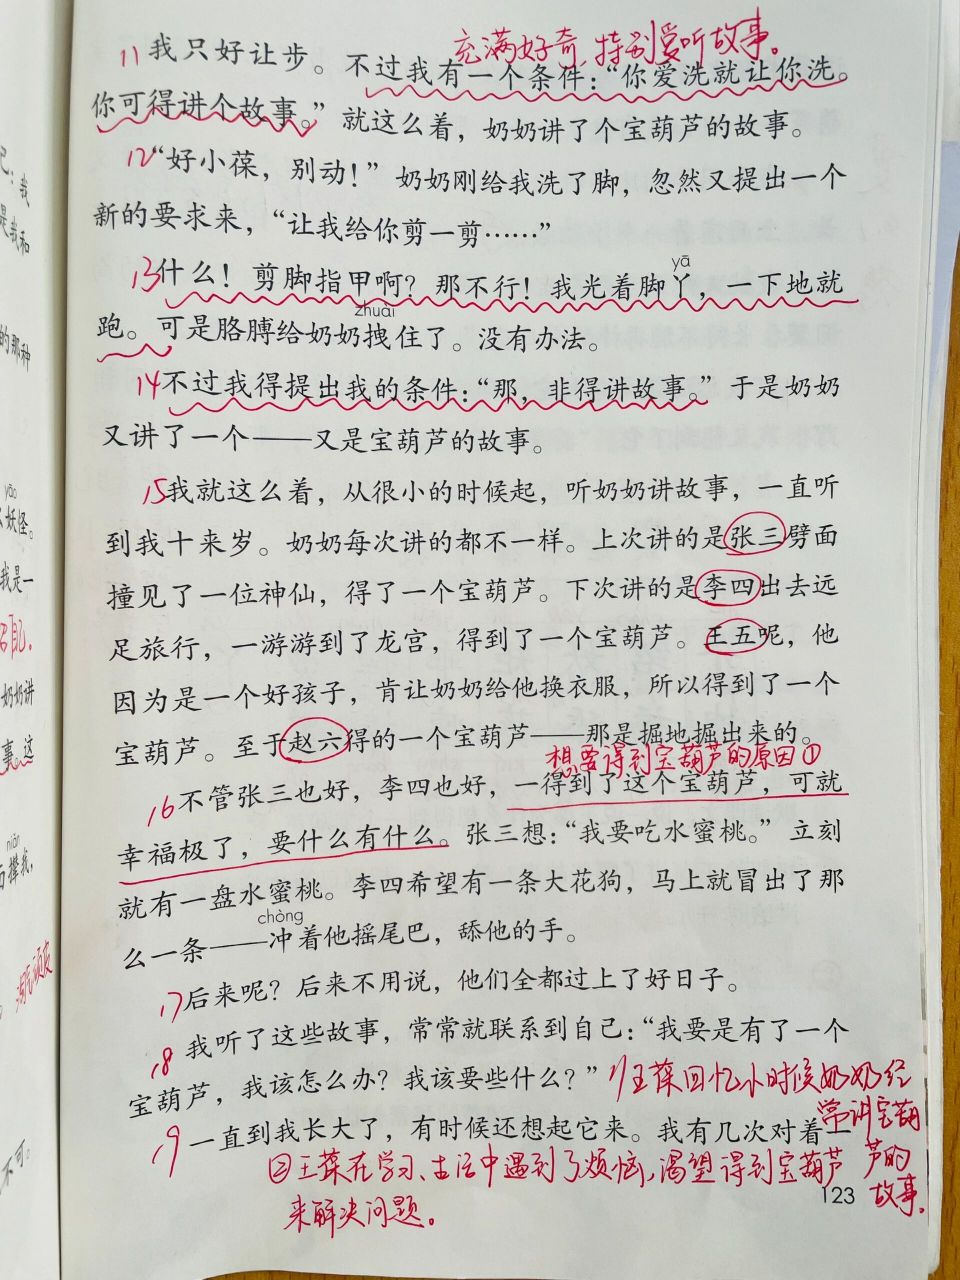 充满好奇,特别爱听故事。
11我只好让步。不过我有一个条件:“你爱洗就让你洗。
你可得讲个故事。”就这么着,奶奶讲了个宝葫芦的故事。
12“好小葆,别动!”奶奶刚给我洗了脚,忽然又提出一个
新的要求来,“让我给你剪一剪……”
yā
13什么!剪脚指甲啊?那不行!我光着脚丫,一下地就
zhuài
跑。可是胳膊给奶奶拽住了。没有办法。
14不过我得提出我的条件:“那,非得讲故事。”于是奶奶
又讲了一个——又是宝葫芦的故事。
15我就这么着,从很小的时候起,听奶奶讲故事,一直听
到我十来岁。奶奶每次讲的都不一样。上次讲的是张三劈面
撞见了一位神仙,得了一个宝葫芦。下次讲的是李四出去远
足旅行,一游游到了龙宫,得到了一个宝葫芦。王五呢,他
因为是一个好孩子,肯让奶奶给他换衣服,所以得到了一个
宝葫芦。至于赵六得的一个宝葫芦——那是掘地掘出来的。
想要得到宝葫芦的原因①
16不管张三也好,李四也好,一得到了这个宝葫芦,可就
幸福极了,要什么有什么。张三想:“我要吃水蜜桃。”立刻
就有一盘水蜜桃。李四希望有一条大花狗,马上就冒出了那
chòng
么一条——冲着他摇尾巴,舔他的手。
17后来呢?后来不用说,他们全都过上了好日子。
18我听了这些故事,常常就联系到自己:“我要是有了一个
宝葫芦,我该怎么办?我该要些什么?”
1)王葆回忆小时候奶奶经
常讲宝葫
芦的
故事。
19一直到我长大了,有时候还想起它来。我有几次对着一
②王葆在学习、生活中遇到了烦恼,渴望得到宝葫芦
来解决问题。
123
己:我
是我和
的那种
yāo
妖怪。
我是一
奶奶讲
事。这
niǎn
后撵我,
不可。